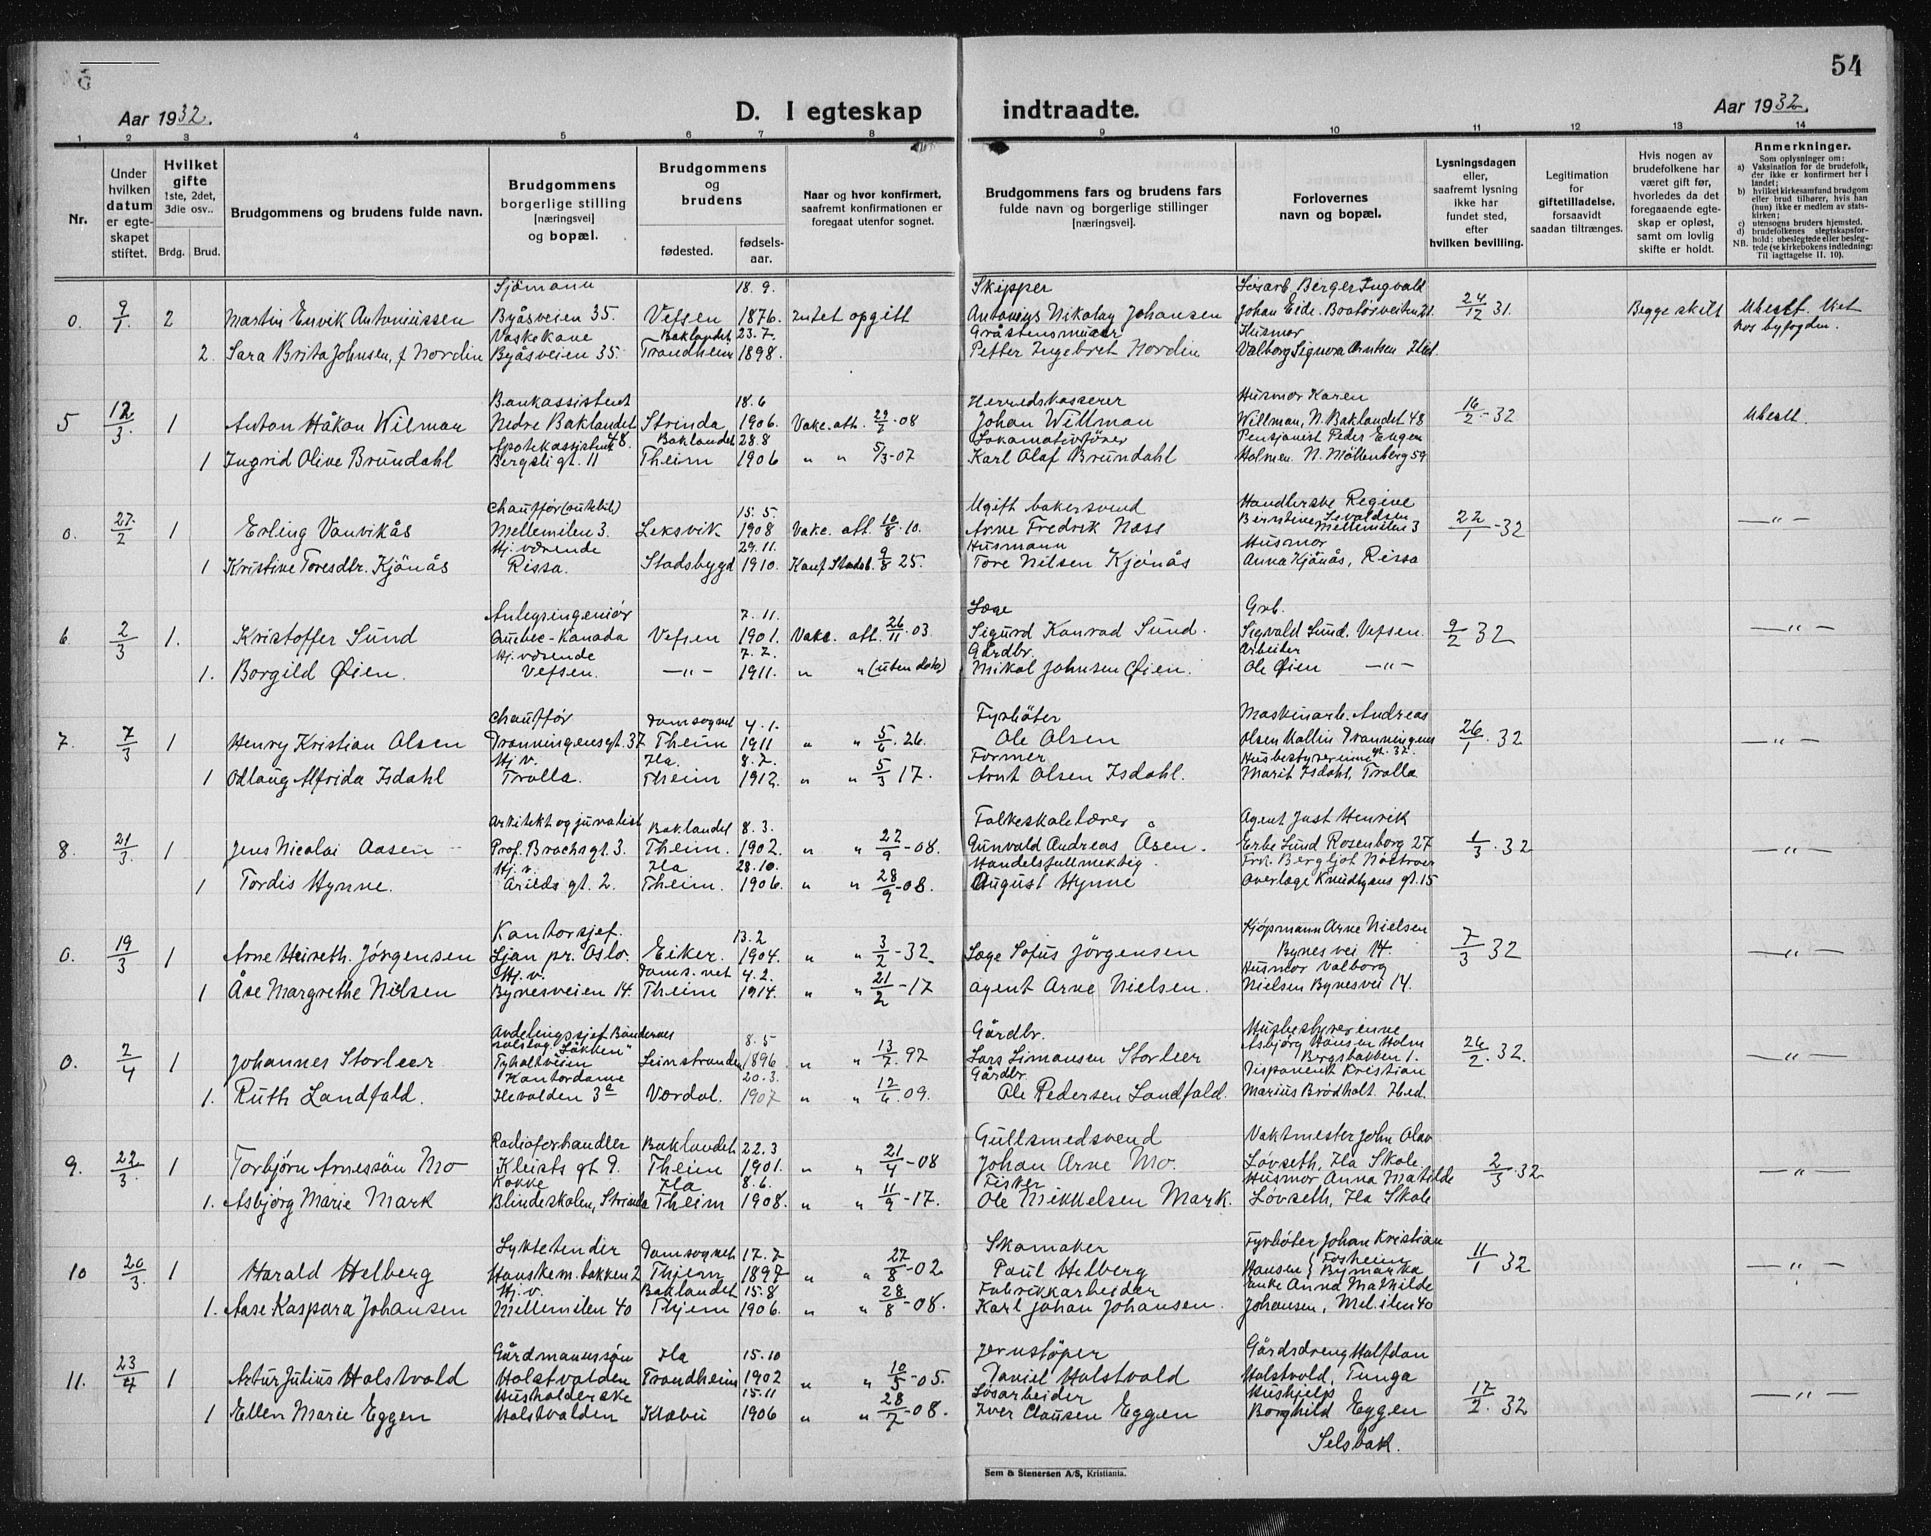 54
Aar 1932.
D. I egteskap indtraadte.
Aar 1932.
1 2 3 4 5 6 7 8 9 10 11 12 13 14
Nr.
Under hvilken datum er egteskapet stiftet.
Hvilket gifte 1ste, 2det, 3die osv..
Brdg. Brud.
Brudgommens og brudens fulde navn.
Brudgommens borgerlige stilling [næringsvei] og bopæl.
Brudgommens og brudens
fødested. fødselsaar.
Naar og hvor konfirmert, saafremt konfirmationen er foregaat utenfor sognet.
Brudgommens fars og brudens fars fulde navn og borgerlige stillinger [næringsvei].
Forlovernes navn og bopæl.
Lysningsdagen eller, saafremt lysning ikke har fundet sted, efter hvilken bevilling.
Legitimation for giftetilladelse, forsaavidt saadan tiltrænges.
Hvis nogen av brudefolkene har været gift før, hvorledes da det foregaaende egteskap er opløst, samt om lovlig skifte er holdt.
Anmerkninger.
Som oplysninger om:
a) Vaksination for de brudefolk, der ikke er konfirmert her i landet;
b) hvilket kirkesamfund brudgom eller brud tilhører, hvis han (hun) ikke er medlem av statskirken;
c) utensogns bruders hjemsted.
d) brudefolkenes slegtskapsforhold: ubeslegtede eller beslegtede (se kirkebokens indledning: Til iagttagelse II. 10).
NB.
Sjømann 18.9. Skipper Løsarb. Berger Ingvald
0. 9/1. 2 Martin Envik Antoniussen Byåsveien 35. Vefsen 1876. Intet opgitt Antonius Nikolay Johansen Johan Eide. Bostösveiten 21 24/12 31. Begge skilt Ubesl. Viet
Vaskekone Baklandet 23.7. Gråstensmurer Husmor hos byfogden.
2. Sara Brita Johnsen, f. Nordin Byåsveien 35. Trondheim 1898. Petter Ingebret Nordin Valborg Signora Arntsen Hed.
Bankassistent 18.6 Herredskasserer Husmor Karen
5 12/3. 1 Anton Håkon Wilman Nedre Baklandet Strinda 1906. Vakc. att. 29/2-08 Johan Willman Willman, N. Baklandet 48 16/2-32 Ubesl.
Apotekassistent 48. Baklandet 28.8 Lokomotivfører Pensjonist Peder Engen
1 Ingrid Olive Brundahl Bergsli gt. 11 Theim 1906 " " 5/3-07 Karl Olaf Brundahl Holmen. N. Möllenberg 59
Chauffør (rutebil) 15.5. Ugift bakersvend Handlerske Regine
0. 27/2 1 Erling Vanvikås Mellemilen 3. Leksvik 1908 Vakc. att. 10/8-10. Arne Fredrik Næss Berntine Sevaldsen Mellemilen 3 22/1-32 —"—
Hj. værende 29.11. Husmann Husmor
1 Kristine Toresdtr. Kjönås Rissa. Stadsbygd 1910. Konf. Stadsb. 9/8 25. Tore Nilsen Kjönås Anna Kjönås, Rissa
Anlegsingeniør 7.11. Læge Grb.
6 2/3 1. Kristoffer Sund Quebec-Kanada Vefsen 1901. Vakc. att. 26/11-03 Sigurd Konrad Sund. Sigvald Sund. Vefsen. 9/2 32 —"—
Hj. værende 7.2. Gårdbr. Arbeider
1. Borgild Øien. Vefsen. —"— 1911. " " (uten dato) Mikal Johnsen Øien. Ole Øien —"—
Chauffør Domsognet 4.1. Fyrbøter Maskinarb. Andreas
7. 7/3 1 Henry Kristian Olsen Dronningensgt. 37 Theim 1911 " " 5/6.26. Ole Olsen Olsen Mollin Dronningens gt. 37. 26/1.32 —"—
Hj. v. Ila. 8.2. Former Husbestyrerinne
1 Odlaug Alfrida Isdahl Trolla. Theim 1912. " " 5/3 17. Arnt Olsen Isdahl. Marit Isdahl, Trolla
Arkitekt og jurnalist Baklandet 8.3. Folkeskolelærer Agent Just Henrik
8. 21/3. 1 Jens Nicolai Aasen Prof. Brochsgt. 3. Theim. 1902. " " 22/9-08. Gunvald Andreas Åsen. Erbe Lund Rosenborg 27 1/3.32 —"—
Hj. v. Ila 28.10. Handelsfullmektig. Frk. Bergljot Nostrøer
1 Tordis Hynne. Arilds gt. 2. Theim. 1906. " " 28/9-08. August Hynne Overlæge Knudtzons gt. 15
Kontorsjef. 13.2 Kjøpmann Arne Nielsen
0. 19/3 1 Arne Heireth. Jörgensen Ljan pr. Oslo. Eiker. 1904. " " 3/2-32. Læge Sofus Jörgensen Bynesvei 14. 7/3 32 —"—
Hj. v. Doms.net 4.2. Husmor Valborg
1 Åse Margrethe Nielsen Bynesveien 14. Theim 1914. " " 21/2-17 agent Arne Nielsen. Nielsen Bynesvei 14.
Avdelingssjef Böndernes salslag. "Løkken" 8.5 Gårdbr. Husbestyrerinne
0. 2/4 1 Johannes Storleer Tyholtveien Leinstranden 1896. " " 13/7.97 Lars Simonsen Storleer Asbjørg Hansen Holm Bergsbakken 1. 26/2.32. —"—
Kontordame 20.3. Gårdbr. Disponent Kristian
1. Ruth Landfald. Ilevolden 3a Verdal. 1907 " " 12/6.09. Ole Pedersen Landfald. Marius Brödholt. Hed.
Radioforhandler Baklandet 22.3 Gullsmedsvend Vaktmester John Olav
9. 22/3. 1 Torbjörn Arnessön Mo Kleists gt 9. Theim 1901. " " 21/4-08 Johan Arne Mo. Løvseth, Ila Skole 2/3.32 —"—
Kokke Ila 8.6. Fisker Husmor Anna Matilde
1. Asbjörg Marie Mark Blindeskolen, Strinda Theim 1908. " " 11/9-17. Ole Mikkelsen Mark. Løvseth, Ila Skole
Lyktetender Domsognet. 17.7 Skomaker Fyrbøter Johan Kristian
10 20/3. 1 Harald Helberg Hanskem. bakken 2 Thjem 1897 " " 27/8-02 Paul Helberg Hansen { Forheim Bymarka 11/1 32 —"—
Hj. v. Baklandet 15.8 Fabrikkarbeider Enke Anna Mathilde
1. Aase Kaspara Johansen Mellemilen 40 Thjem 1906. " " 28/8-08. Karl Johan Johansen. Johansen, Mel.ilen 40
Gårdmannssön Ila 15.10 Jernstöper Gårdsdreng Halfdan
11. 23/4 1 Artur Julius Holstvold Holstvolden Trondheim 1902 " " 10/5-05. Daniel Holstvold Holstvold, Tunga
Husholderske 15.11 Løsarbeider Hushjelp
1 Ellen Marie Eggen Holstvolden Klæbu 1906 " " 28/7-08. Iver Clausen Eggen Borghild Eggen 17/2.32 —"—
Selsbak.
Sem & Stenersen A/S, Kristiania.